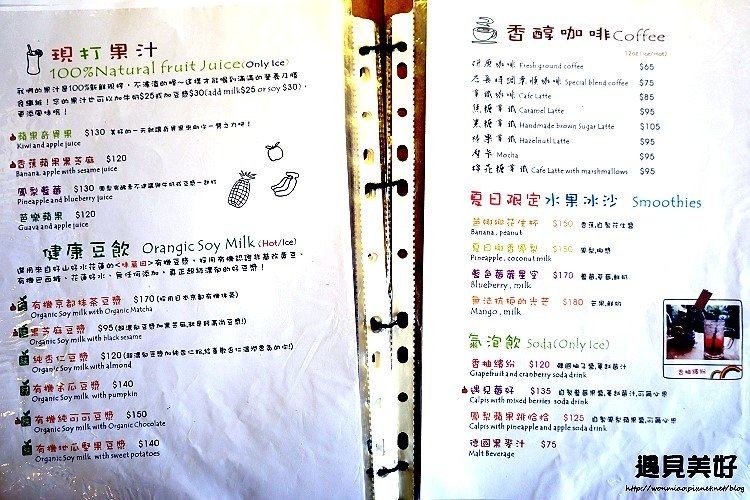 現打果汁
100%Natural fruit Juice(Only Ice)
我們的果汁是100%新鮮現榨，不濃濁的唷~這樣才能喝到滿滿的營養及膳
食纖維！您的果汁也可以加牛奶$25或加豆漿$30(add milk$25 or soy $30)，
更添風味喔！
蘋果奇異果 $130
Kiwi and apple juice
香蕉蘋果黑芝麻 $120
Banana, apple with sesame juice
鳳梨藍莓 $130
Pineapple and blueberry juice
芭樂蘋果 $120
Guava and apple juice
健康豆飲 Orangic Soy Milk (Hot/Ice)
有機京都抹茶豆漿 $170(採用日本京都有機抹茶)
Organic Soy milk with Organic Matcha
黑芝麻豆漿 $95
Organic Soy milk with black sesame
純杏仁豆漿 $120
Organic Soy milk with almond
有機南瓜豆漿 $140
Organic Soy milk with pumpkin
有機純可可豆漿 $150
Organic Soy milk with Organic Chocolate
有機地瓜堅果豆漿 $140
Organic Soy milk with sweet potatoes
香醇咖啡Coffee
12oz(ice/hot)
研磨咖啡 Fresh ground coffee $65
店長特調素燒咖啡 Special blend coffee $75
拿鐵咖啡 Cafe Latte $85
焦糖拿鐵 Caramel Latte $95
黑糖拿鐵 Handmade brown Sugar Latte $105
榛果拿鐵 Hazelnutl Latte $95
摩卡 Mocha $95
棉花糖拿鐵 Cafe Latte with marshmallows $95
夏日限定水果冰沙 Smoothies
芭娜娜花生杯 $150 香蕉,自製花生醬
Banana , peanut
夏日椰香鳳梨 $150 鳳梨,椰漿
Pineapple , coconut milk
藍色莓麗星空 $170 藍莓,草莓,鮮奶
Blueberry , milk
無法抗拒的光芒 $180 芒果,鮮奶
Mango , milk
氣泡飲 Soda(Only Ice)
香柚繽紛 $120 韓國柚子醬,蔓越莓汁
Grapefruit and cranberry soda drink
遇見莓好 $135 自製藍莓果醬,蔓越莓汁,可爾必思
Calpis with mixed berries soda drink
鳳梨蘋果跳恰恰 $125 自製鳳梨蘋果醬,可爾必思
Calpis with pineapple and apple soda drink
德國果麥汁 $75
Malt Beverage
香柚繽紛
遇見美好
http://wonmiao.pixnet.net/blog